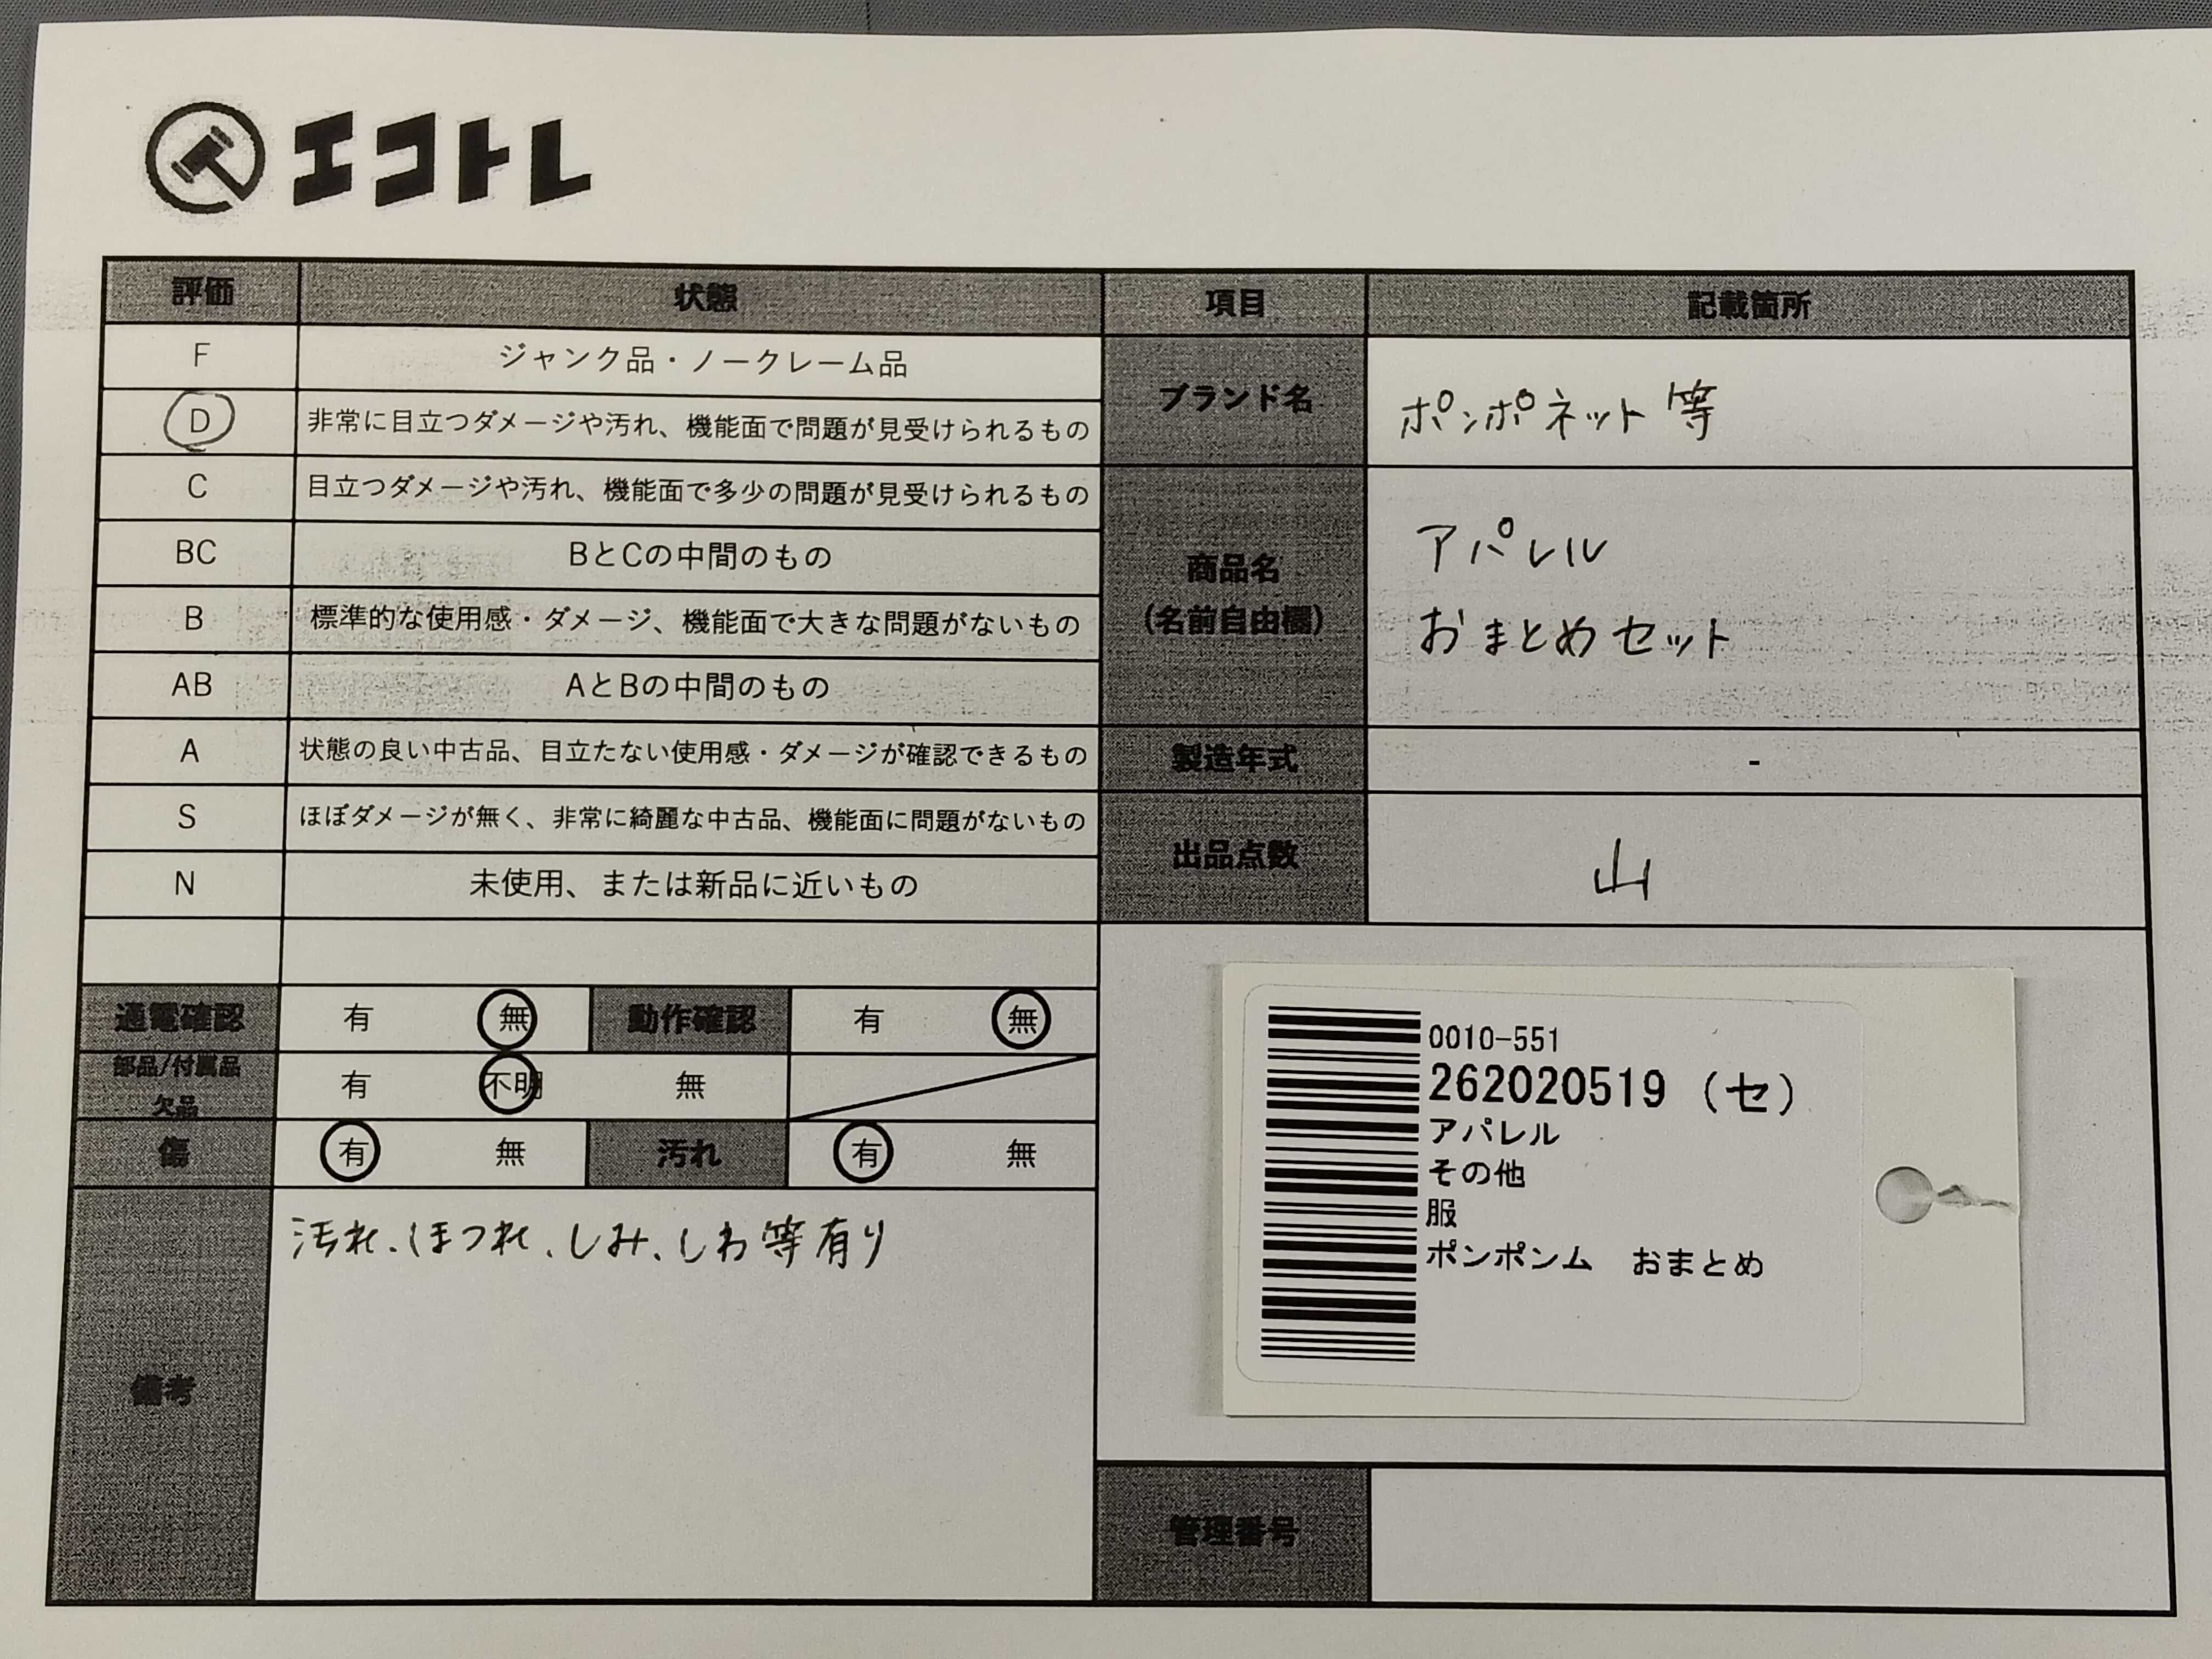 エコトレ
評価 状態 項目 記載箇所
F ジャンク品・ノークレーム品
D 非常に目立つダメージや汚れ、機能面で問題が見受けられるもの
C 目立つダメージや汚れ、機能面で多少の問題が見受けられるもの
BC BとCの中間のもの
B 標準的な使用感・ダメージ、機能面で大きな問題がないもの
AB AとBの中間のもの
A 状態の良い中古品、目立たない使用感・ダメージが確認できるもの
S ほぼダメージが無く、非常に綺麗な中古品、機能面に問題がないもの
N 未使用、または新品に近いもの
ブランド名 ポンポネット等
商品名
(名前自由欄)
アパレル
おまとめセット
製造年式 -
出品点数 山
通電確認 有 無 動作確認 有 無
部品/付属品
欠品
有 不明 無
傷 有 無 汚れ 有 無
備考
汚れ、ほつれ、しみ、しわ等有り
0010-551
262020519 (セ)
アパレル
その他
服
ポンポンム おまとめ
管理番号